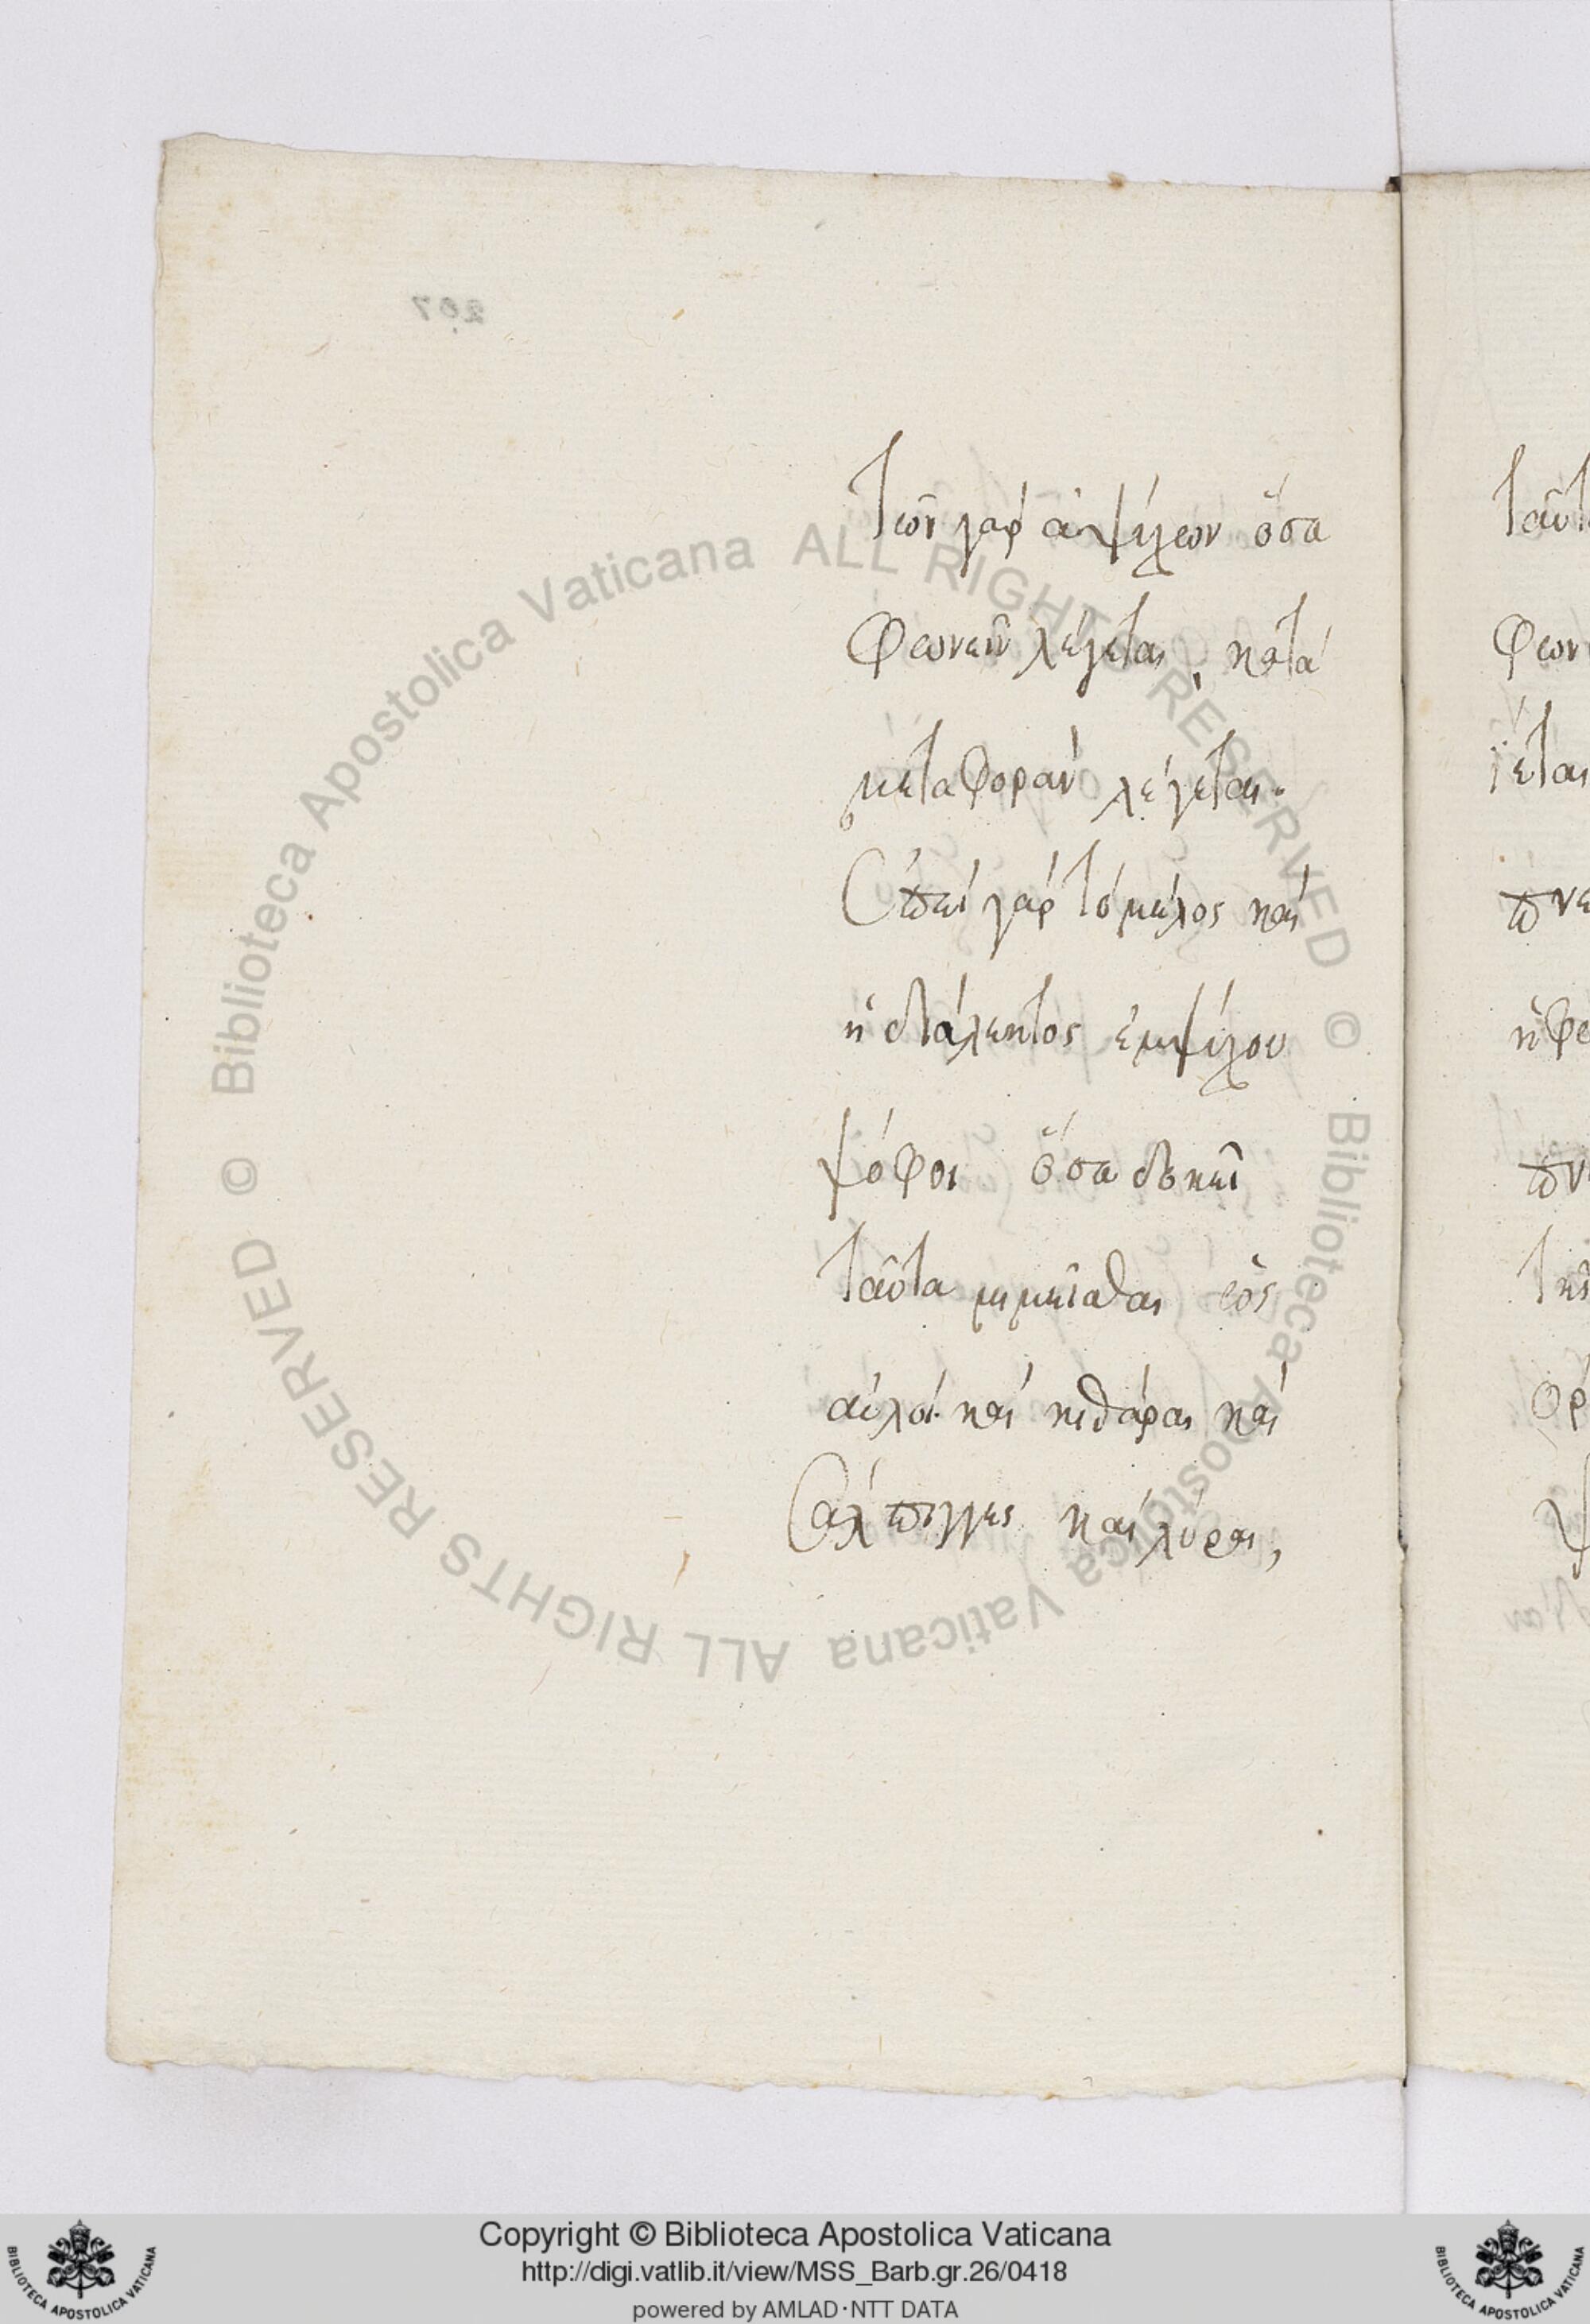 207
Τῶν γὰρ ἀψύχων ὅσα
φωνεῖν λέγεται, κατὰ
μεταφορὰν λέγεται.
Ἐπεὶ γὰρ τὸ μέλος καὶ
ἡ διάλεκτος ἐμψύχου
ψόφοι ὅσα δοκεῖ
ταῦτα μιμεῖσθαι ὡς
αὐλοὶ καὶ κιθάραι καὶ
σάλπιγγες καὶ λύραι,
© Biblioteca Apostolica Vaticana ALL RIGHTS RESERVED © Biblioteca Apostolica Vaticana ALL RIGHTS RESERVED
Copyright © Biblioteca Apostolica Vaticana
http://digi.vatlib.it/view/MSS_Barb.gr.26/0418
powered by AMLAD·NTT DATA
BIBLIOTECA APOSTOLICA VATICANA
BIBLIOTECA APOSTOLICA VATICANA